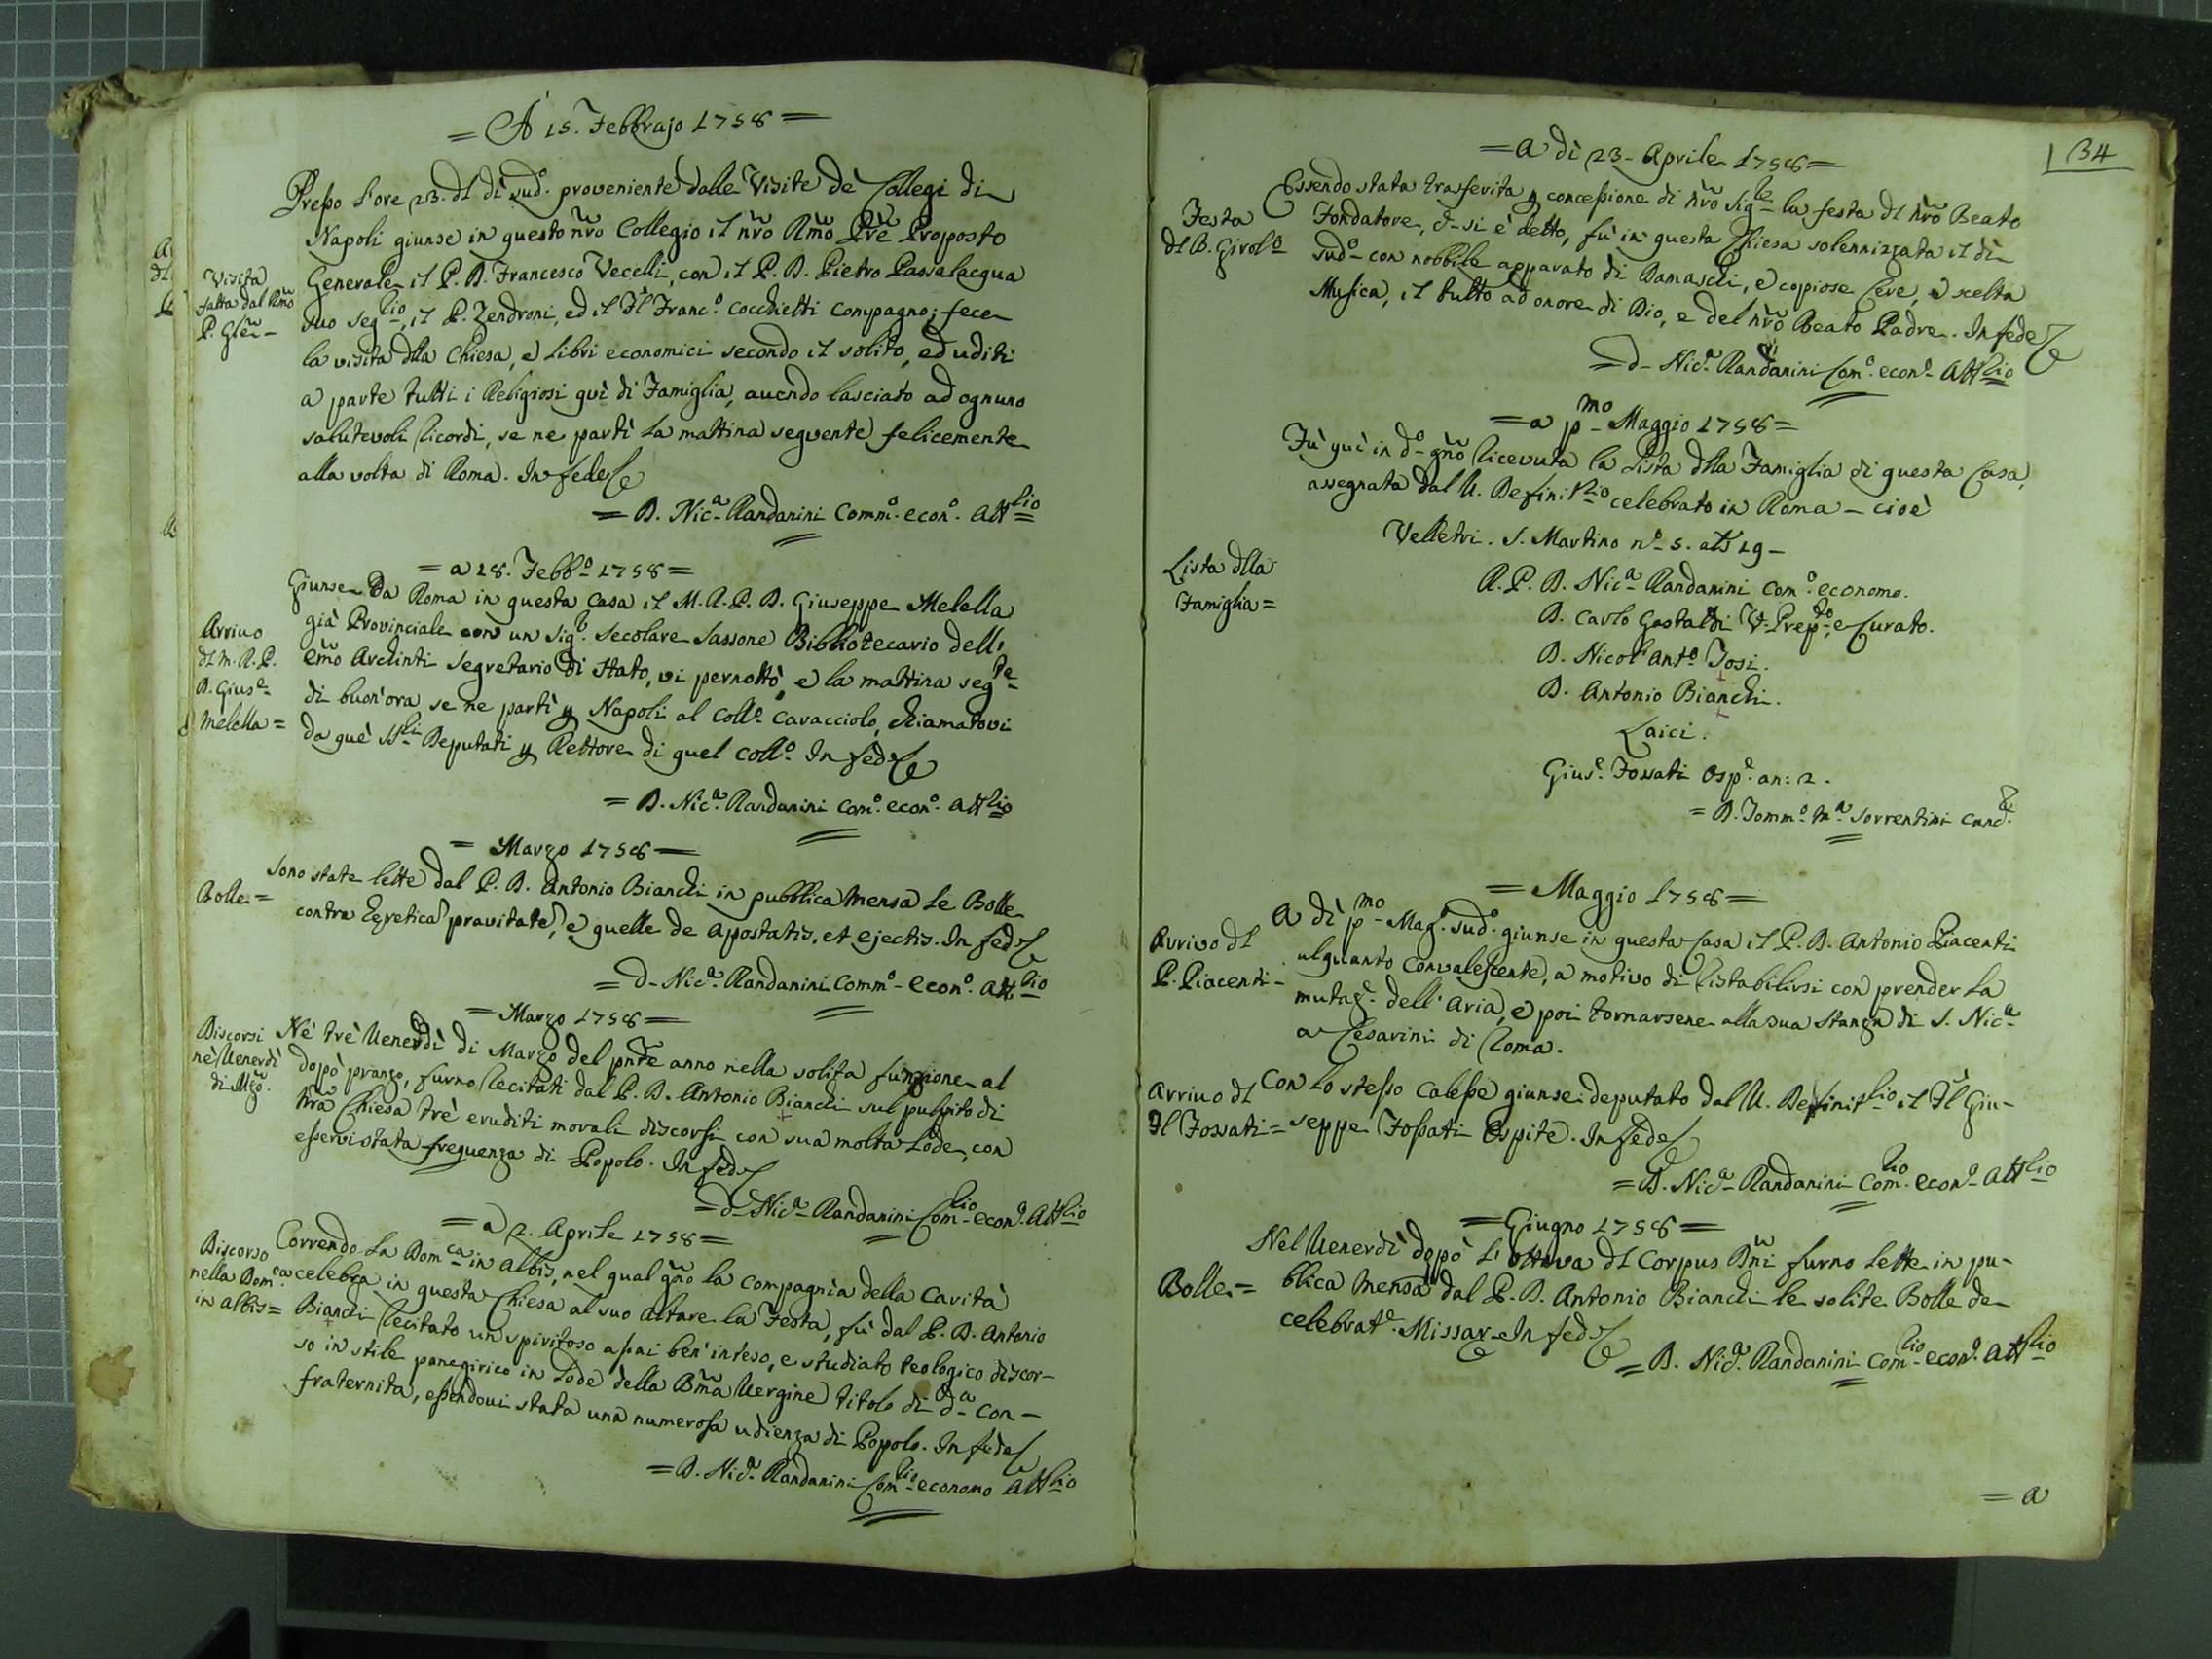 = A 15. Febbrajo 1758 =
Presso l'ore 23. dl dì sud.o proveniente dalle Visite de Collegi di
Napoli giunse in questo nr̃o Collegio il nr̃o Rm̃o Pr̃e Proposto
Visita
fatta dal Rm̃o
P. Gl̃e -
Generale il P. D. Francesco Vecelli, con il P. D. Pietro Passalacqua
suo seglio, il P. Zendroni, ed il Fl Franc.o Cocchietti compagno; fece
la visita dlla Chiesa, e libri economici secondo il solito, ed uditi
a parte tutti i Religiosi quì di Famiglia, auendo lasciato ad ognuno
salutevoli ricordi, se ne partì la mattina seguente felicemente
alla volta di Roma. In fede
= D. Nic.a Randanini Comm.o econ.o attlio
= a 28. Febb.o 1758 =
Arriuo
dl M. R. P.
D. Gius.e
Melella =
Giunse Da Roma in questa casa il M. R. P. D. Giuseppe Melella
già Provinciale con un sig.r secolare Sassone Bibliotecario dell'
em̃o Archinti segretario di stato, vi pernottò, e la mattina segte
di buon'ora se ne partì p Napoli al Coll.o Caracciolo, chiamatovi
da què SSri Deputati p Rettore di quel Coll.o In fede
= D. Nic.a Randanini Com.o econ.o attlio
= Marzo 1758 =
Bolle =
Sono state lette dal P. D. Antonio Bianchi in pubblica mensa le Bolle
contra hęretica pravitate, e quelle de apostatis, et ejectis. In fede
= D. Nic.a Randanini Comm.o econ.o attlio
= Marzo 1758 =
Discorsi
nè Uenerdì
di Mzo.
Nè trè Uenerdì di Marzo del pnte anno nella solita funzione al
dopò pranzo, furno recitati dal P. D. Antonio Bianchi sul pulpito di
nr̃a Chiesa trè eruditi morali discorsi con sua molta lode, con
esservi stata frequenza di Popolo. In fede
= D. Nic.a Randanini Comlio econ.o attlio
= a 2. Aprile 1758 =
Discorso
nella Domca
in albis =
Correndo la Domca in Albis, nel qual gño la Compagnia della Carità
celebra in questa Chiesa al suo Altare la Festa, fù dal P. D. Antonio
Bianchi recitato un spiritoso assai ben'inteso, e studiato teologico discor-
so in stile panegirico in lode della Bm̃a Uergine titolo di d.a con-
fraternita, essendoui stata una numerosa udienza di Popolo. In fede
= D. Nic.a Randanini Comlio economo attlio
34
= a dì 23 - Aprile 1758 =
Festa
dl B. Girol.o
Essendo stata trasferita p concessione di nr̃o Sigre la festa dl nr̃o Beato
Fondatore, si è detto, fù in questa Chiesa solennizzata il dì
sud.o con nobbile apparato di Damaschi, e copiose Cere, e scelta
Musica, il tutto ad onore di Dio, e del nr̃o Beato Padre. In fede
= D. Nic.a Randanini Com.o econ.o attlio
= a pmo Maggio 1758 =
Fù quì in d.o gño ricevuta la Lista dlla Famiglia di questa Casa,
assegnata dal U. Definitlio celebrato in Roma - cioè
Velletri. S. Martino n.o 5.
Lista dlla
Famiglia =
R. P. D. Nic.a Randanini Com.o economo.
D. Carlo Gastaldi V. Prep.to, e Curato.
D. Nicol'Ant.o Tosi.
D. Antonio Bianchi.
Laici.
Gius.e Fossati Osp.e an: 2.
= D. Tomm.o M.a Sorrentini Canc.e
= Maggio 1758 =
Arrivo dl
P. Piacenti -
A dì pmo Mag.o sud.o giunse in questa Casa il P. D. Antonio Piacenti
alquanto convalescente, a motivo di ristabilirsi con prender la
mutaz.e dell'Aria, e poi tornarsene alla sua stanza di S. Nic.a
a Cesarini di Roma.
Arriuo dl
Fl Fossati =
Con lo stesso Calesse giunse deputato dal U. Definitlio il Fl Giu-
seppe Fossati Ospite. In fede
= D. Nic.a Randanini Comlio econ.o attlio
= Giugno 1758 =
Bolle =
Nel Uenerdì dopò l'ottava dl Corpus Dñi furno lette in pu-
blica mensa dal P. D. Antonio Bianchi le solite Bolle de
celebrat.e Missar. In fede
= D. Nic.a Randanini Comlio econ.o attlio
= a